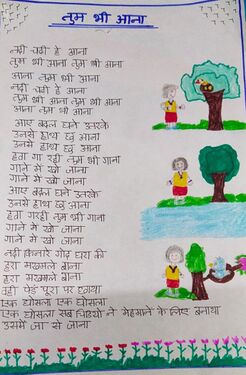 तुम भी आना
नदी यही है आना
तुम भी आना तुम भी आना
आना तुम भी आना
नदी यही है आना
तुम भी आना तुम भी आना
आना तुम भी आना
आए बदल घने उनके
उनसे हाथ छू आना
उनसे हाथ छू आना
हवा गा रही तुम भी गाना
गाने में खो जाना
गाने में खो जाना
आए बदल घने उनके
उनसे हाथ छू आना
हवा गा रही तुम भी गाना
गाने में खो जाना
गाने में खो जाना
नदी किनारे गोद धरा की
हरा मखमले बाना
हरा मखमले बाना
वही पेड़ पूरा पर
एक घोसला एक घोसला
एक घोसला सब चिड़ियो ने मेहमानो के लिए बनाया
उसमें जा से जाना